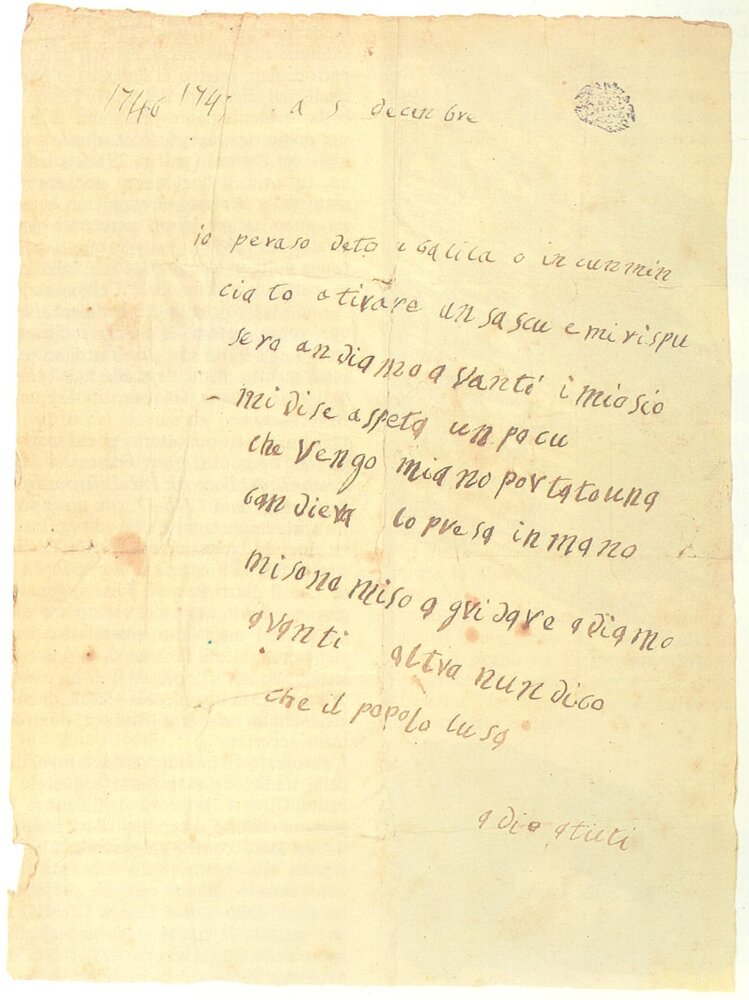 1746 1747 a 5 decenbre
io peraso deto a balila o in cunmin
cia to a tirare un sascu e mi rispu
sero andiamo avanti i mio sio
mi dise aspeta un pocu
che vengo mi ano portato una
bandiera lo presa in mano
mi sono miso a gridare adiamo
avanti altra nun dico
che il popolo lu sa
a dio a tuti